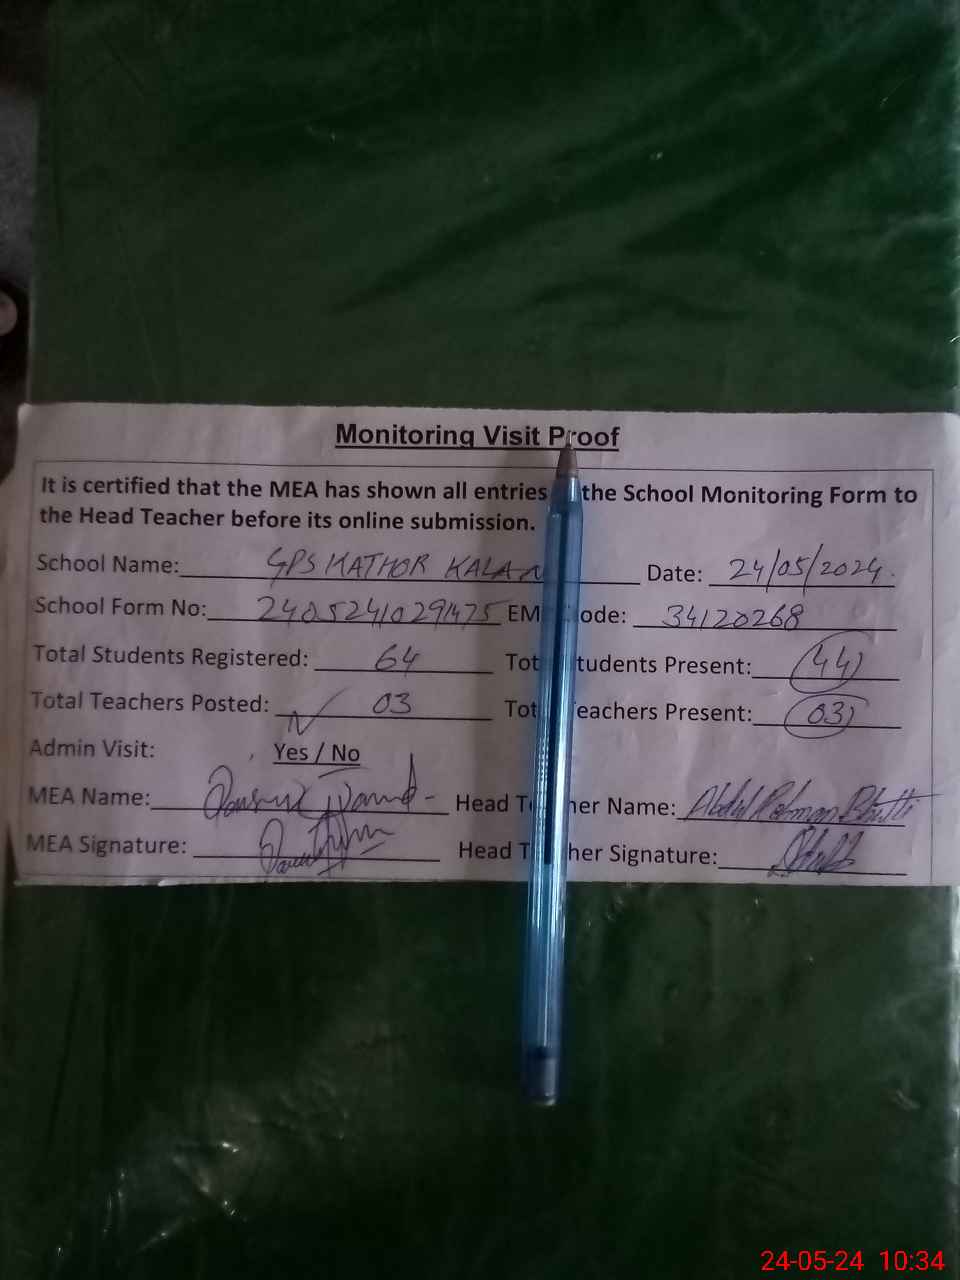 Monitoring Visit Proof
It is certified that the MEA has shown all entries the School Monitoring Form to
the Head Teacher before its online submission.
School Name: GPS KATHOR KALAN Date: 24/05/2024.
School Form No: EM ode: 34120268
Total Students Registered: 64 Tot tudents Present: 44
Total Teachers Posted: 03 Tot eachers Present: 03
Admin Visit: Yes / No
MEA Name: Head T her Name: Abdul Rehman Bhatti
MEA Signature: Head T her Signature:
24-05-24 10:34